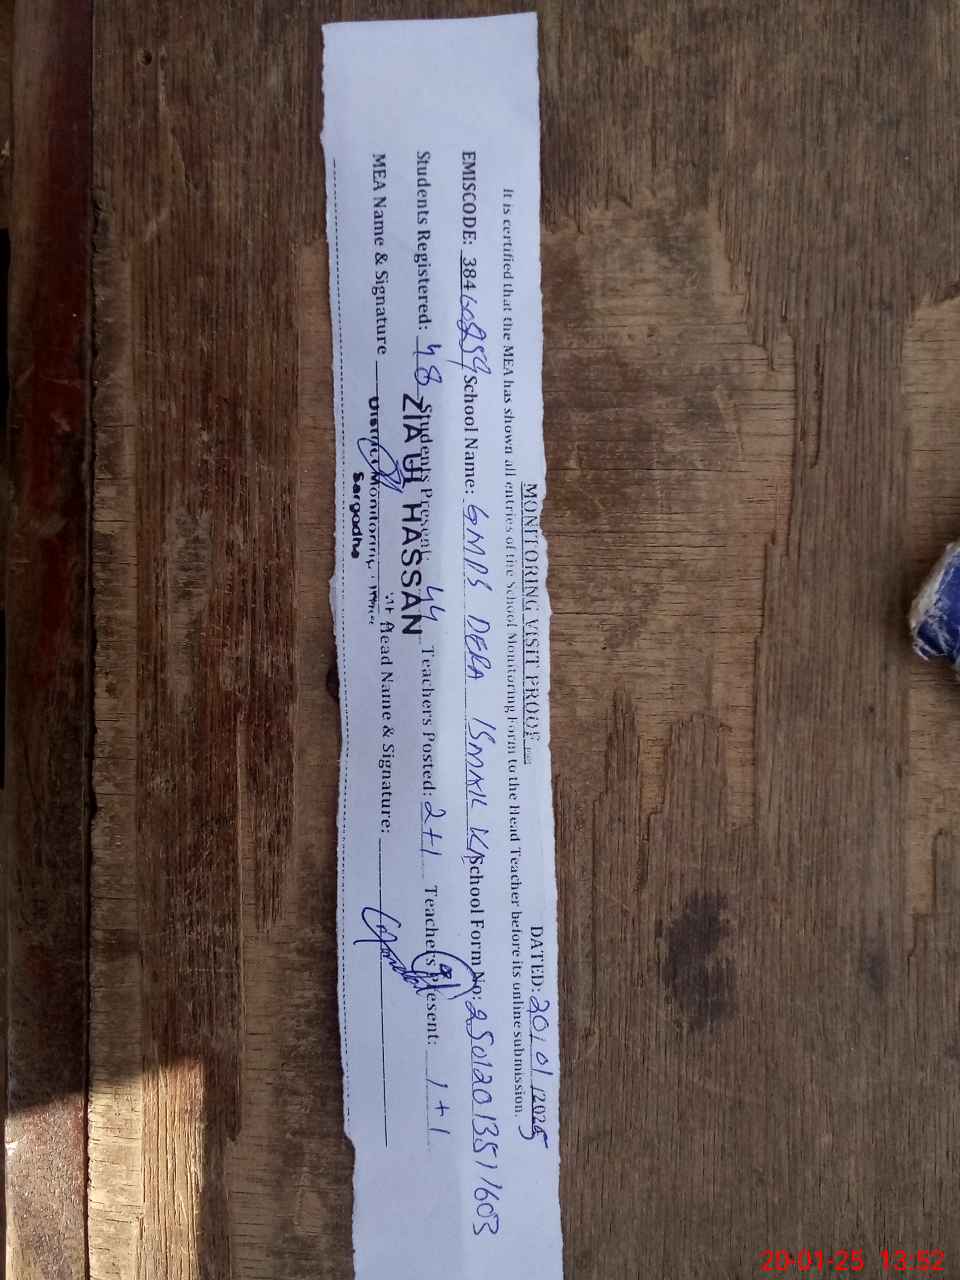 MONITORING VISIT PROOF
DATED: 20/01/2025
It is certified that the MEA has shown all entries of the School Monitoring Form to the Head Teacher before its online submission.
EMISCODE: 38460259 School Name: GMPS DERA ISMAIL School Form No: 25012013511603
Students Registered: 48 Students Present: 44 Teachers Posted: 2+1 Teachers Present: 1+1
ZIA UL HASSAN
MEA Name & Signature Head Name & Signature:
District Monitoring
Sargodha
20-01-25 13:52